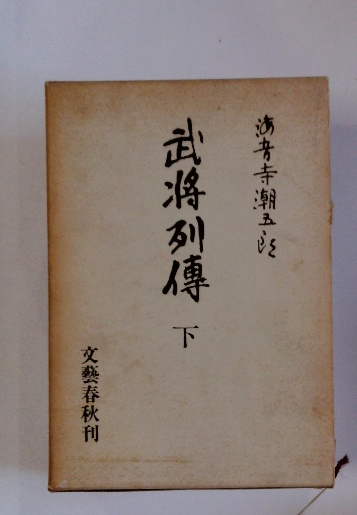 海音寺潮五郎
武將列傳
下
文藝春秋刊